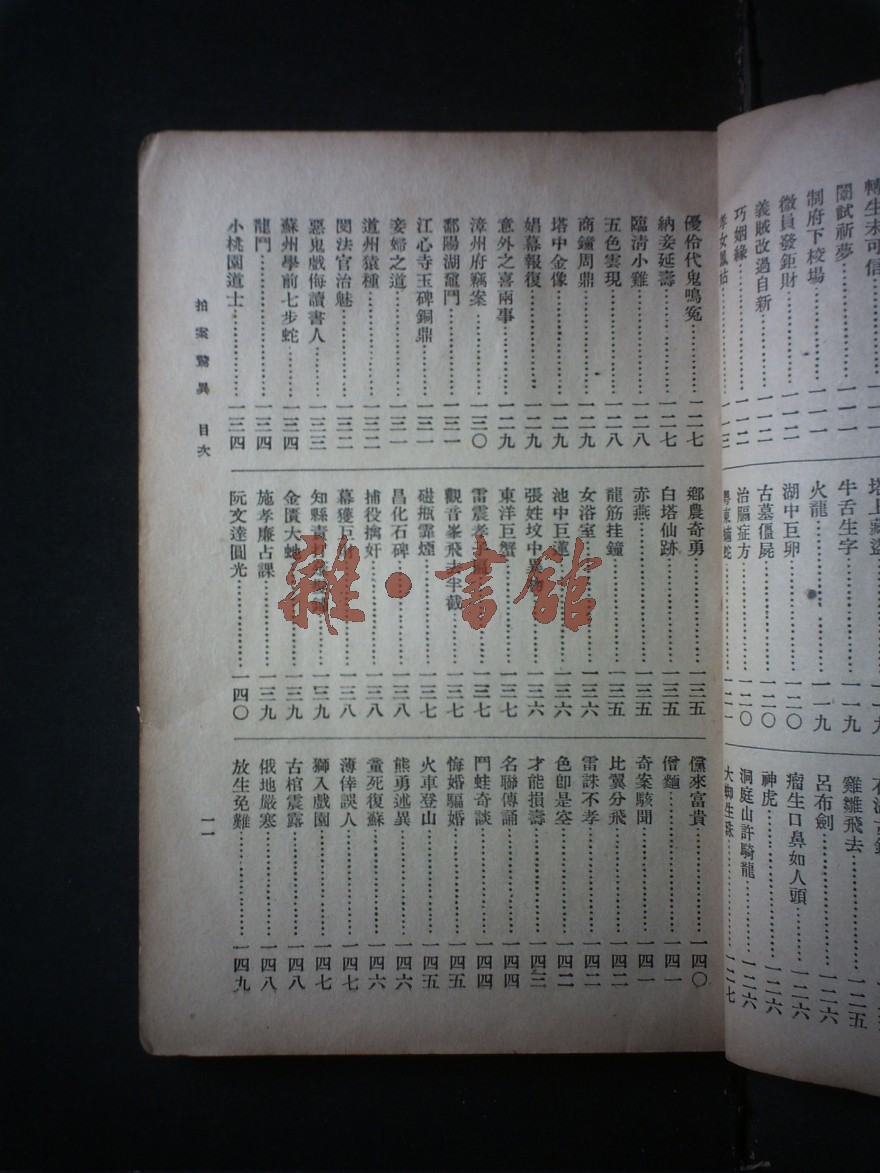 轉生未可信
闈試祈夢……一一一
制府下校場……一一一
微員發鉅財……一一二
義賊改過自新……一一二
巧姻緣……一一二
女鳳姑……一一三
塔上藏盜……一一九
牛舌生字……一一九
火龍……一一九
湖中巨卵……一二〇
古墓僵屍……一二〇
治膈症方……一二〇
粵東捕蛇……一二一
雞雛飛去……一二五
呂布劍……一二六
瘤生口鼻如人頭……一二六
神虎……一二六
洞庭山許騎龍……一二六
大脚生珠……一二七
優伶代鬼鳴冤……一二七
納妾延壽……一二七
臨清小雞……一二八
五色雲現……一二八
商鐘周鼎……一二九
塔中金像……一二九
娼幕報復……一二九
意外之喜兩事……一二九
漳州府竊案……一三〇
鄱陽湖黿鬥……一三一
江心寺玉碑銅鼎……一三一
妾婦之道……一三一
道州猿種……一三二
閔法官治魅……一三二
惡鬼戲侮讀書人……一三三
蘇州學前七步蛇……一三四
龍鬥……一三四
小桃園道士……一三四
鄉農奇勇……一三五
白塔仙跡……一三五
赤燕……一三五
龍筋挂鐘……一三五
女浴室……一三六
池中巨蓮……一三六
張姓坟中異物……一三六
東洋巨蟹……一三七
雷震孝子……一三七
觀音峯飛去半截……一三七
磁瓶霏煙……一三七
昌化石碑……一三八
捕役擒奸……一三八
幕獲巨……一三八
知縣責……一三九
金匱大蚺……一三九
施孝廉占課……一三九
阮文達圓光……一四〇
儻來富貴……一四〇
僧麵……一四一
奇案駭聞……一四一
比翼分飛……一四二
雷誅不孝……一四二
色卽是空……一四二
才能損壽……一四三
名聯傳誦……一四四
鬥蛙奇談……一四四
悔婚騙婚……一四五
火車登山……一四五
熊勇述異……一四六
童死復蘇……一四六
薄倖誤人……一四七
獅入戲園……一四七
古棺震露……一四八
俄地嚴寒……一四八
放生免難……一四九
拍案驚異 目次
一一
雜·書館